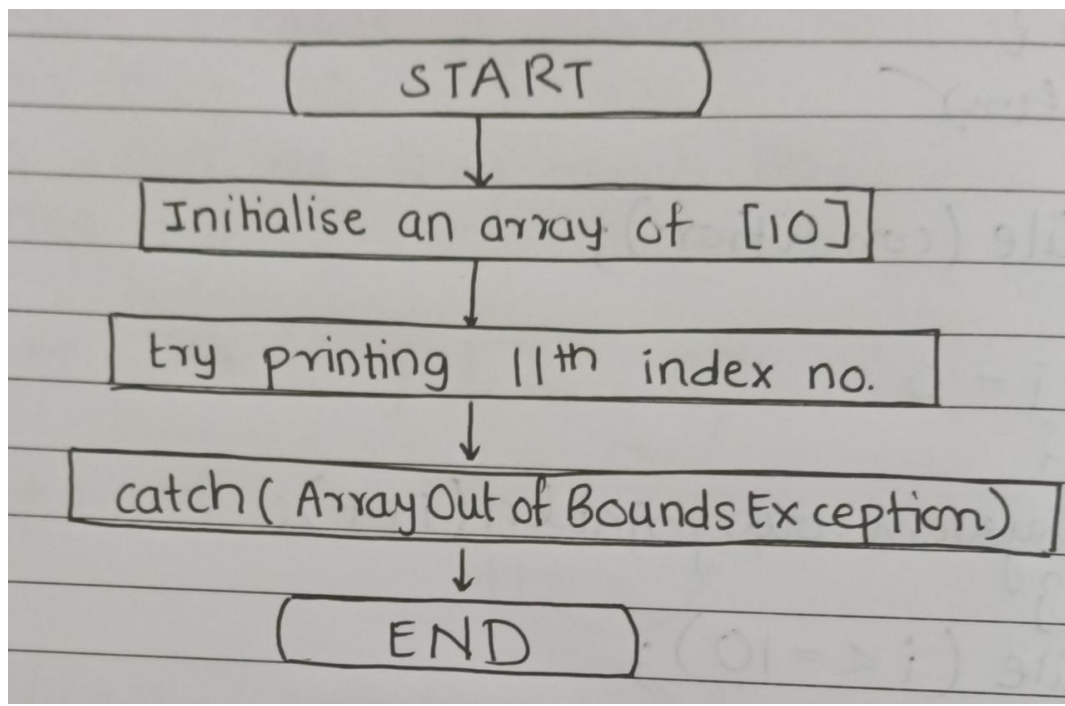 START
Initialise an array of [10]
try printing 11th index no.
catch (Array Out of Bounds Exception)
END